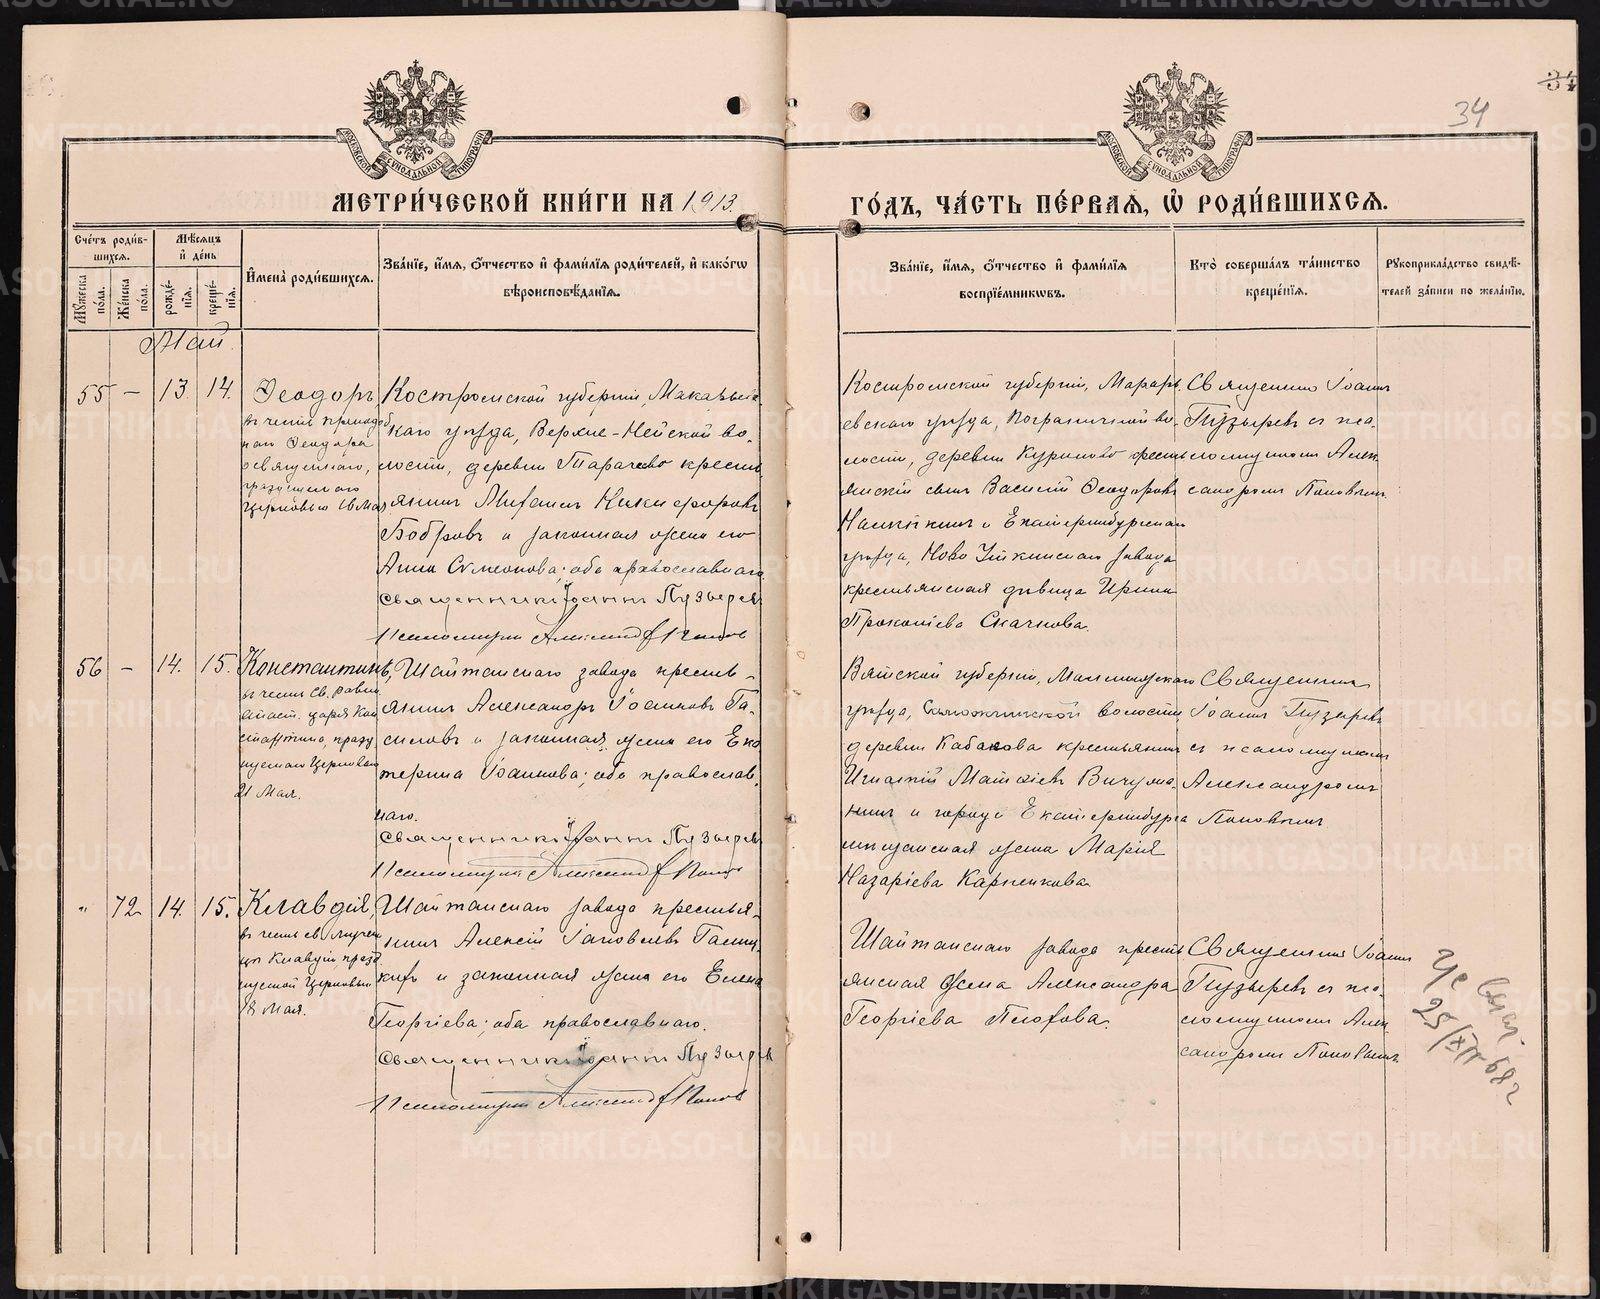 34
МОСКОВСКОЙ СѴНОДАЛЬНОЙ ТИПОГРАФІИ
МОСКОВСКОЙ СѴНОДАЛЬНОЙ ТИПОГРАФІИ
МЕТРИ́ЧЕСКОЙ КНИ́ГИ НА 1913
ГО́ДЪ, ЧА́СТЬ ПЕ́РВАѦ, Ѡ҆ РОДИ́ВШИХСѦ.
Сче́тъ роди́в-
шихсѧ.
Мѣ́сѧцъ
и҆ де́нь
Мꙋ́жеска по́ла.
Же́нска по́ла.
рожде́-
нїѧ.
креще́-
нїѧ.
И҆мена̀ роди́вшихсѧ.
Зва́нїе, и҆́мѧ, ѻ҆́тчество и҆ фами́лїѧ роди́телей, и҆ како́гѡ
вѣроисповѣ́данїѧ.
Зва́нїе, и҆́мѧ, ѻ҆́тчество и҆ фами́лїѧ
воспрїе́мникѡвъ.
Кто̀ соверша́лъ та́инство
креще́нїѧ.
Рꙋкоприкла́дство свидѣ́-
телей за́писи по жела́нїю.
Май
55 — 13. 14.
Ѳеодоръ
въ честь преподоб
наго Ѳеодора
освященнаго,
празднуемаго
Церковью 16 Мая
Костромской губерніи, Макарьев-
скаго уѣзда, Верхне-Нейской во-
лости, деревни Тарачево кресть
янинъ Михаилъ Никифоровъ
Бобровъ и законная жена его
Анна Сумеонова; оба православнаго.
Священникъ Іоаннъ Пузыревъ
Псаломщикъ Александръ Поповъ
Костромской губерніи, Макарь
евскаго уѣзда, Пограничной во-
лости, деревни Куриново кресть
янскій сынъ Василій Ѳеодоровъ
и Екатеринбургскаго
уѣзда, Ново Уткинскаго завода
крестьянская дѣвица Ирина
Прокопіева Скачкова.
Священникъ Іоаннъ
Пузыревъ съ пса-
ломщикомъ Алек
сандромъ Поповымъ
56 — 14. 15.
Константинъ,
въ честь Св. Равно
апост. царя Кон
стантина, празд
нуемаго Церковью
21 Мая.
Шайтанскаго завода кресть-
янинъ Александръ Іоанновъ Га-
силовъ и законная жена его Ека
терина Іоаннова; оба православ-
наго.
Священникъ Іоаннъ Пузыревъ
Псаломщикъ Александръ Поповъ
Вятской губерніи, Малмыжскаго
уѣзда, волости
деревни Кабакова крестьянинъ
Игнатій Матѳіевъ Вичужа-
нинъ и города Екатеринбурга
мѣщанская жена Марія
Назаріева Карпенкова
Священникъ
Іоаннъ Пузыревъ
съ псаломщикомъ
Александромъ
Поповымъ
" 72 14. 15.
Клавдія,
въ честь св. мучен
цы Клавдіи, празд
нуемой Церковью
18 Мая.
Шайтанскаго завода крестья-
нинъ Алексій Іаковлевъ Галиц
кихъ и законная жена его Елена
Георгіева; оба православнаго.
Священникъ Іоаннъ Пузыревъ
Псаломщикъ Александръ Поповъ
Шайтанскаго завода кресть
янская жена Александра
Георгіева Плохова.
Священникъ Іоаннъ
Пузыревъ съ пса-
ломщикомъ Алек
сандромъ Поповымъ
25/XII 682